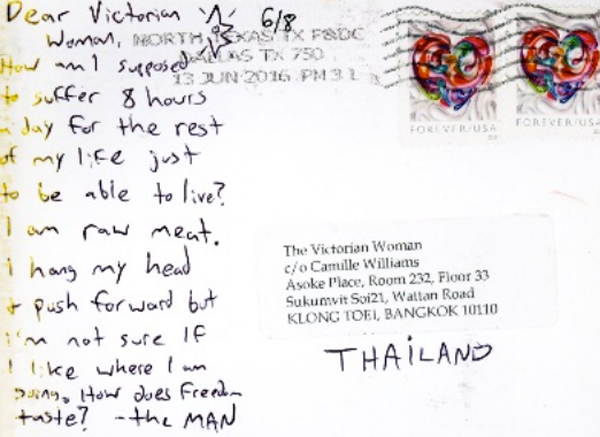 Dear Victorian
Woman,
6/8
How am I supposed
to suffer 8 hours
a day for the rest
of my life just
to be able to live?
I am raw meat.
i hang my head
+ push forward but
i'm not sure If
I like where I am
going. How does freedom
taste? - the MAN
NORTH TEXAS TX P&DC
DALLAS TX 750
13 JUN 2016 PM 3 L
FOREVER/USA
FOREVER/USA
The Victorian Woman
c/o Camille Williams
Asoke Place, Room 232, Floor 33
Sukumvit Soi21, Wattan Road
KLONG TOEI, BANGKOK 10110
THAILAND